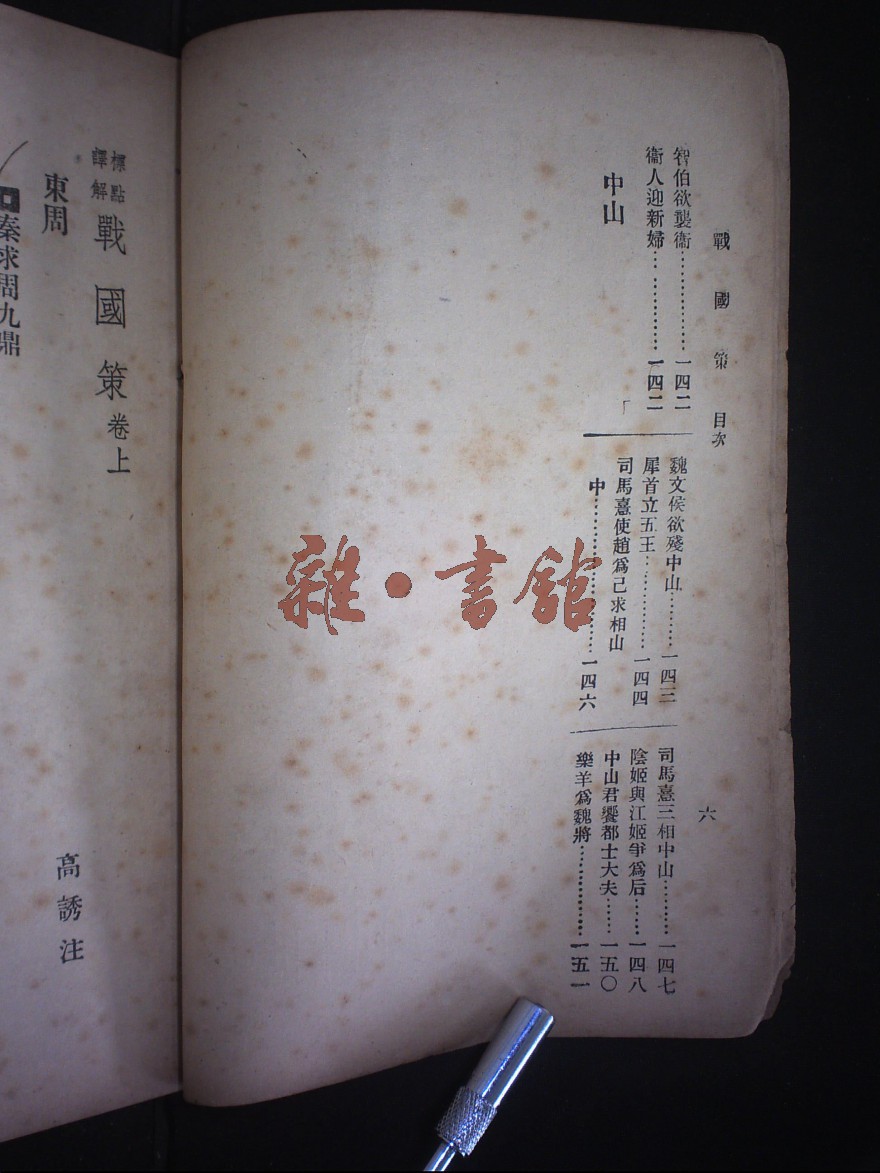 戰國策 目次
六
智伯欲襲衞………………一四二
衞人迎新婦………………一四二
中山
魏文侯欲殘中山………一四三
犀首立五王………………一四四
司馬憙使趙爲己求相山
中………………………一四六
司馬憙三相中山………一四七
陰姬與江姬爭爲后……一四八
中山君饗都士大夫……一五〇
樂羊爲魏將………………一五一
標點
譯解
戰國策卷上
高誘注
東周
秦求周九鼎
雜·書館